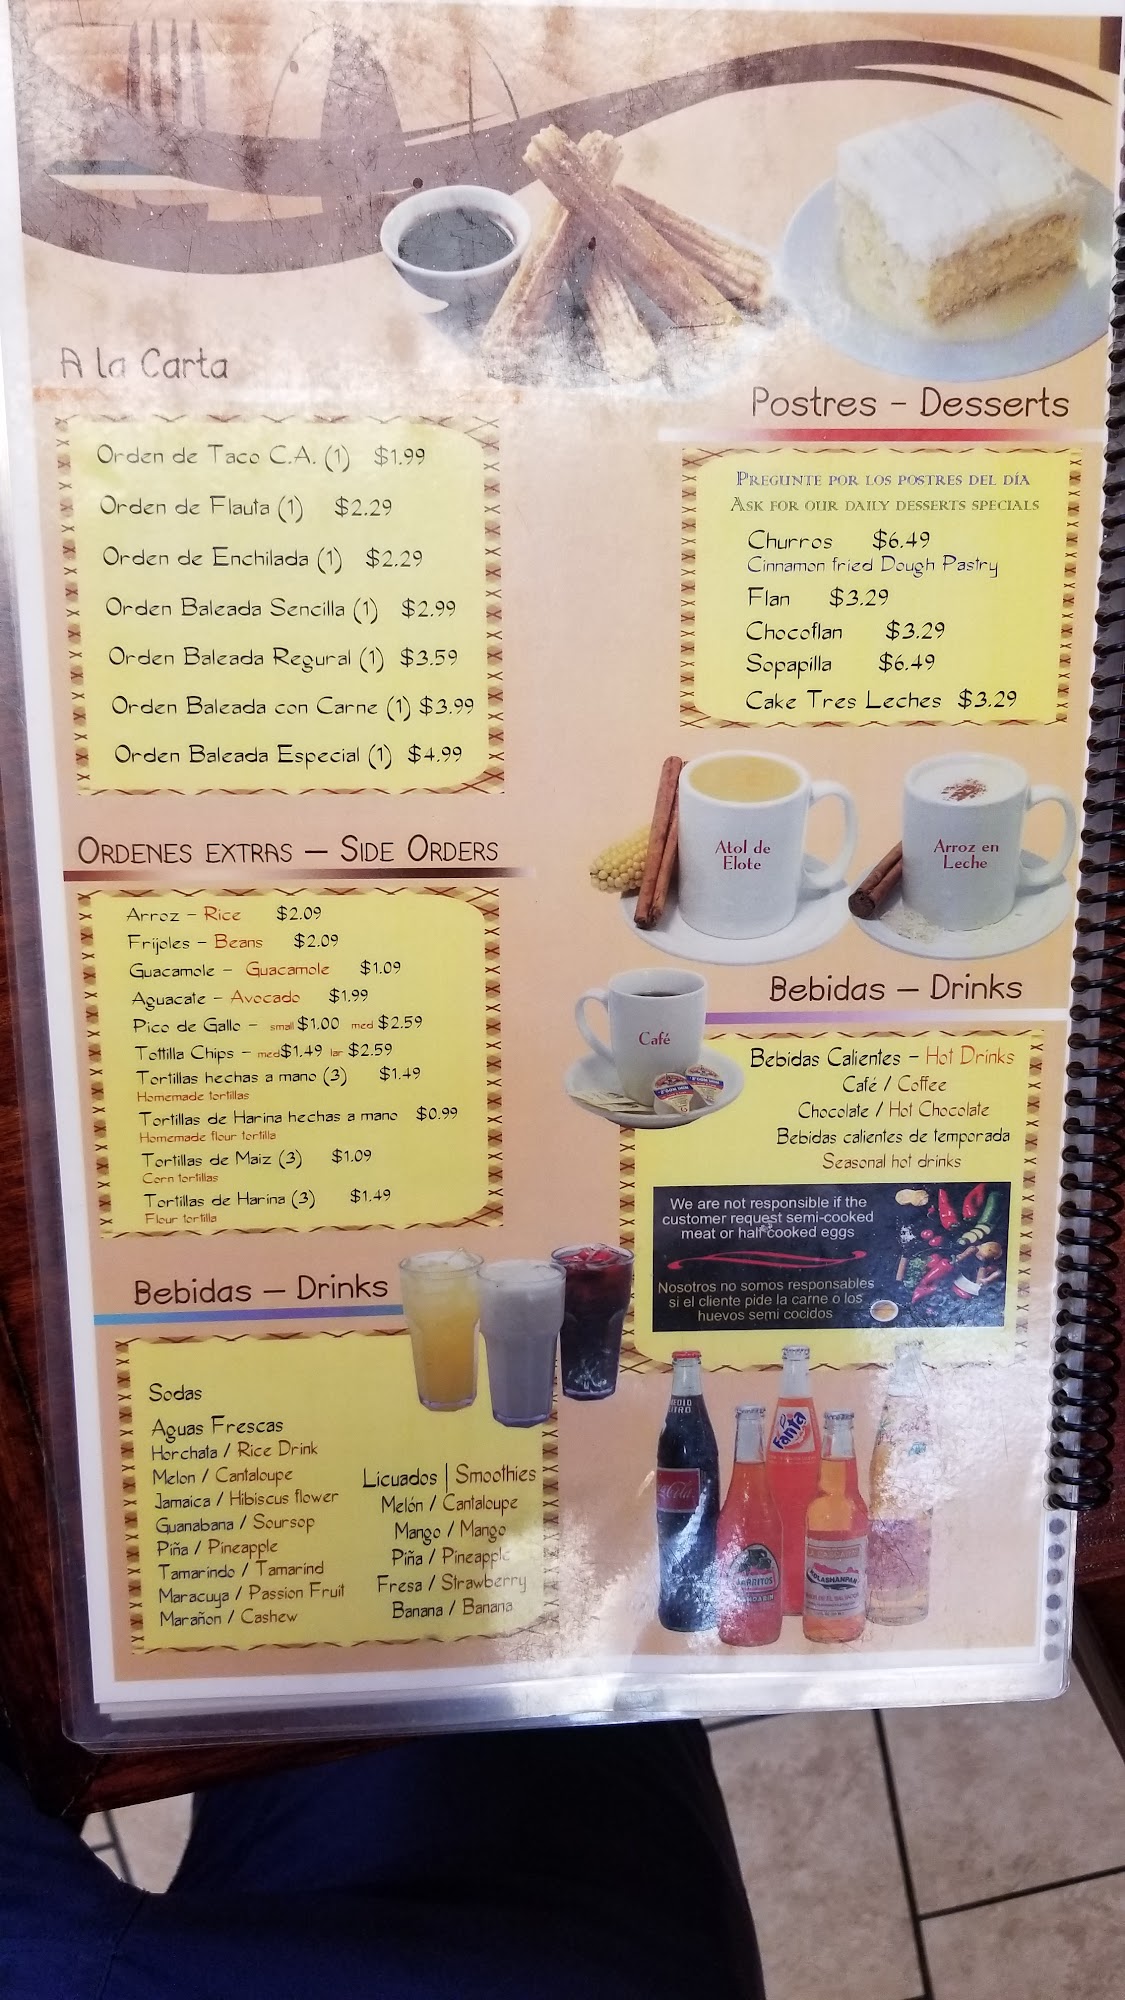 A la Carta
Orden de Taco C.A. (1) $1.99
Orden de Flauta (1) $2.29
Orden de Enchilada (1) $2.29
Orden Baleada Sencilla (1) $2.99
Orden Baleada Regural (1) $3.59
Orden Baleada con Carne (1) $3.99
Orden Baleada Especial (1) $4.99
ORDENES EXTRAS – SIDE ORDERS
Arroz – Rice $2.09
Frijoles – Beans $2.09
Guacamole – Guacamole $1.09
Aguacate – Avocado $1.99
Pico de Gallo – small $1.00 med $2.59
Tottilla Chips – med $1.49 lar $2.59
Tortillas hechas a mano (3) $1.49
Homemade tortillas
Tortillas de Harina hechas a mano $0.99
Homemade flour tortilla
Tortillas de Maiz (3) $1.09
Corn tortillas
Tortillas de Harina (3) $1.49
Flour tortilla
Bebidas – Drinks
Sodas
Aguas Frescas
Horchata / Rice Drink
Melon / Cantaloupe
Jamaica / Hibiscus flower
Guanabana / Soursop
Piña / Pineapple
Tamarindo / Tamarind
Maracuya / Passion Fruit
Marañon / Cashew
Licuados | Smoothies
Melón / Cantaloupe
Mango / Mango
Piña / Pineapple
Fresa / Strawberry
Banana / Banana
Postres – Desserts
PREGUNTE POR LOS POSTRES DEL DÍA
ASK FOR OUR DAILY DESSERTS SPECIALS
Churros $6.49
Cinnamon fried Dough Pastry
Flan $3.29
Chocoflan $3.29
Sopapilla $6.49
Cake Tres Leches $3.29
Atol de
Elote
Arroz en
Leche
Café
Bebidas – Drinks
Bebidas Calientes – Hot Drinks
Café / Coffee
Chocolate / Hot Chocolate
Bebidas calientes de temporada
Seasonal hot drinks
We are not responsible if the
customer request semi-cooked
meat or half cooked eggs
Nosotros no somos responsables
si el cliente pide la carne o los
huevos semi cocidos
MEDIO
LITRO
Fanta
JARRITOS
MANDARIN
KOLASHANPAN